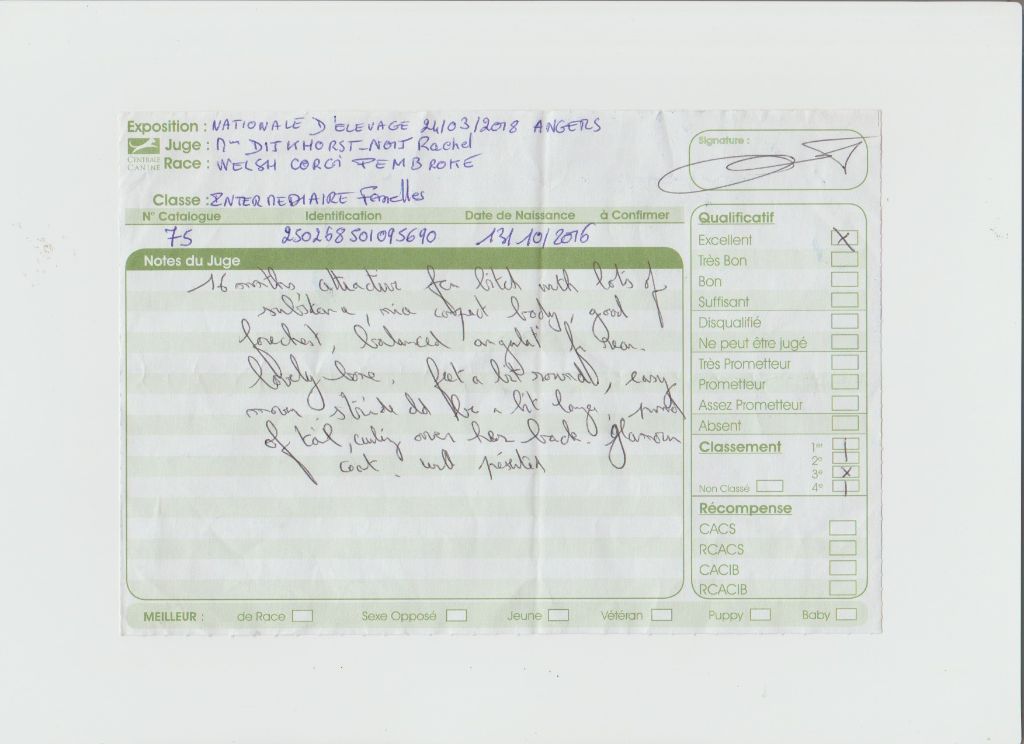 Exposition : NATIONALE D'ELEVAGE 24/03/2018 ANGERS
CENTRALE CANINE
Juge : Mme DITKHORST-NOIJ Rachel
Race : WELSH CORGI PEMBROKE
Classe : INTERMEDIAIRE Femelles
Signature :
N° Catalogue Identification Date de Naissance à Confirmer
75 250268501095690 13/10/2016
Notes du Juge
16 months attractive bitch with lots of
substance, nice compact body, good
forechest, balanced angulat rear.
Lovely bone. feet a bit round, easy
mover. stride a bit longer,
of tail, curling over her back. glamour
coat. well
Qualificatif
Excellent X
Très Bon
Bon
Suffisant
Disqualifié
Ne peut être jugé
Très Prometteur
Prometteur
Assez Prometteur
Absent
Classement 1er
2e
3e X
Non Classé 4e
Récompense
CACS
RCACS
CACIB
RCACIB
MEILLEUR : de Race Sexe Opposé Jeune Vétéran Puppy Baby